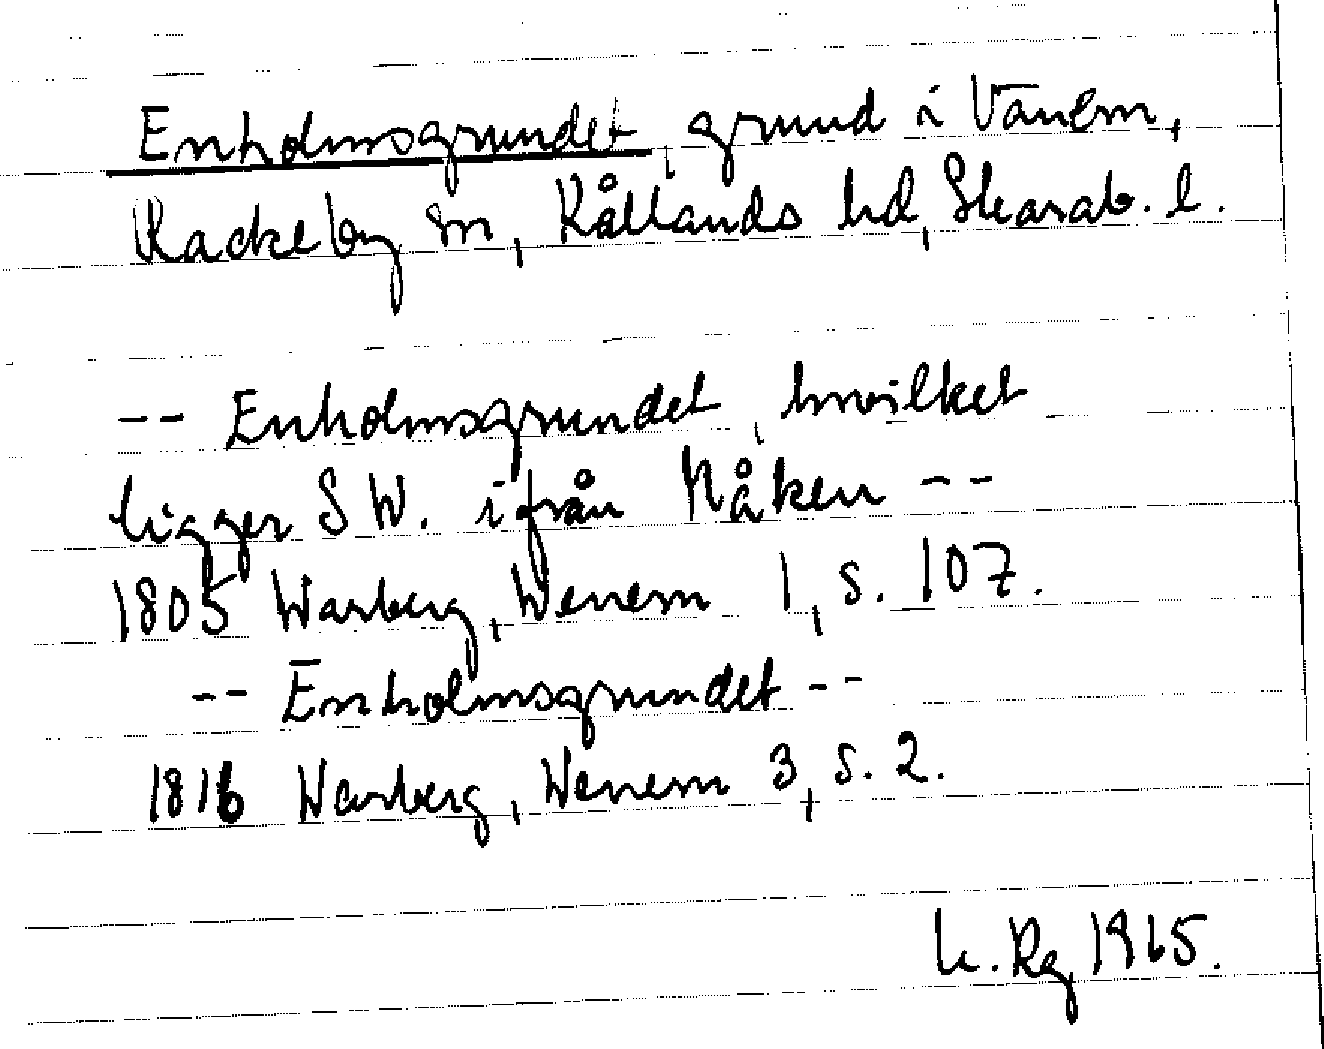 Enholmsgrundet, grund i Vänern,
Rackeby sn, Kållands hd, Skarab. l.
-- Enholmsgrundet, hwilket
ligger SW. ifrån Nåken --
1805 Warberg, Wenern 1, s. 107.
-- Enholmsgrundet --
1816 Warberg, Wenern 3, s. 2.
Rg 1965.